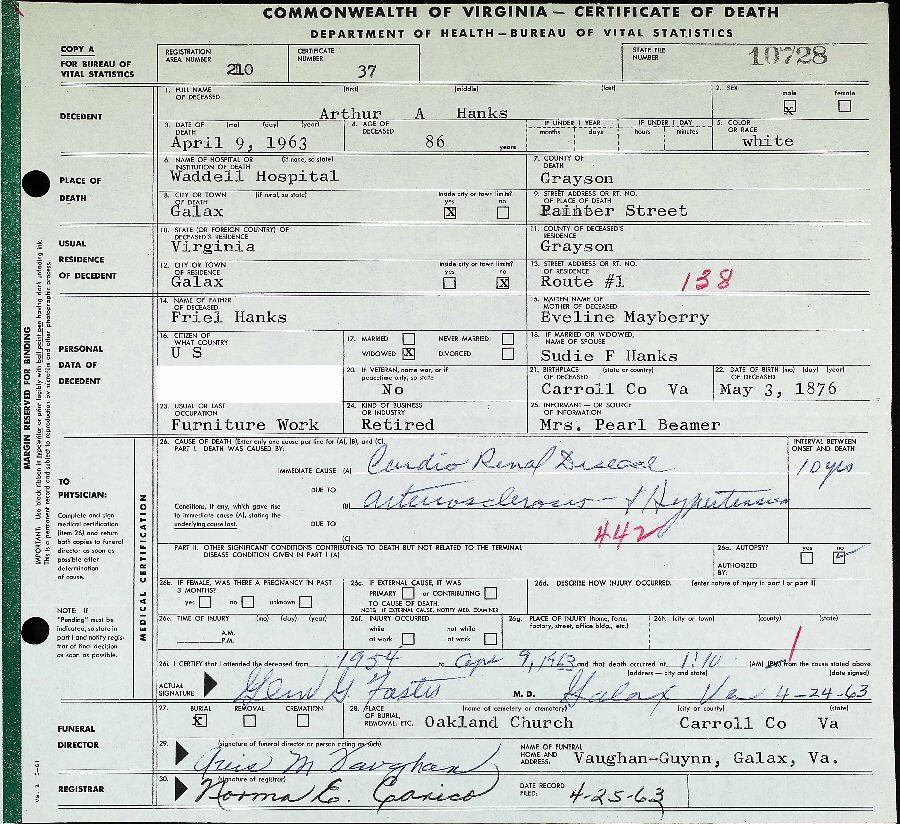 COMMONWEALTH OF VIRGINIA — CERTIFICATE OF DEATH
DEPARTMENT OF HEALTH — BUREAU OF VITAL STATISTICS
COPY A
FOR BUREAU OF
VITAL STATISTICS
REGISTRATION
AREA NUMBER 210
CERTIFICATE
NUMBER 37
STATE FILE
NUMBER 10728
DECEDENT
1. FULL NAME (first) (middle) (last)
OF DECEASED
Arthur A Hanks
2. SEX male female
X
3. DATE OF (mo) (day) (year)
DEATH
April 9, 1963
4. AGE OF
DECEASED
86 years
IF UNDER 1 YEAR
months days
IF UNDER 1 DAY
hours minutes
5. COLOR
OR RACE
white
PLACE OF
DEATH
6. NAME OF HOSPITAL OR (if none, so state)
INSTITUTION OF DEATH
Waddell Hospital
7. COUNTY OF
DEATH
Grayson
8. CITY OR TOWN (if rural, so state) inside city or town limits?
OF DEATH yes no
Galax X
9. STREET ADDRESS OR RT. NO.
OF PLACE OF DEATH
Painter Street
USUAL
RESIDENCE
OF DECEDENT
10. STATE (OR FOREIGN COUNTRY) OF
DECEASED'S RESIDENCE
Virginia
11. COUNTY OF DECEASED'S
RESIDENCE
Grayson
12. CITY OR TOWN inside city or town limits?
OF RESIDENCE yes no
Galax X
13. STREET ADDRESS OR RT. NO.
OF RESIDENCE
Route #1 138
PERSONAL
DATA OF
DECEDENT
14. NAME OF FATHER
OF DECEASED
Friel Hanks
5. MAIDEN NAME OF
MOTHER OF DECEASED
Eveline Mayberry
16. CITIZEN OF
WHAT COUNTRY
U S
17. MARRIED NEVER MARRIED
WIDOWED X DIVORCED
18. IF MARRIED OR WIDOWED,
NAME OF SPOUSE
Sudie F Hanks
20. IF VETERAN, name war, or if
peacetime only, so state
No
21. BIRTHPLACE (state or country)
OF DECEASED
Carroll Co Va
22. DATE OF BIRTH (mo) (day) (year)
OF DECEASED
May 3, 1876
23. USUAL OR LAST
OCCUPATION
Furniture Work
24. KIND OF BUSINESS
OR INDUSTRY
Retired
25. INFORMANT — OR SOURCE
OF INFORMATION
Mrs. Pearl Beamer
MARGIN RESERVED FOR BINDING
IMPORTANT: Use black ribbon in typewriter or print legibly with ball point pen having dark unfading ink.
This is a permanent record and subject to reproduction by microfilm and other photographic process.
TO
PHYSICIAN:
Complete and sign
medical certification
(item 26) and return
both copies to funeral
director as soon as
possible after
determination
of cause.
NOTE: IF
"Pending" must be
indicated, so state in
part I and notify regis-
trar of final decision
as soon as possible.
MEDICAL CERTIFICATION
26. CAUSE OF DEATH (Enter only one cause per line for (A), (B), and (C).
PART I. DEATH WAS CAUSED BY:
INTERVAL BETWEEN
ONSET AND DEATH
IMMEDIATE CAUSE (A) Cardio Renal Disease 10 yrs
DUE TO
Conditions, if any, which gave rise
to immediate cause (A), stating the
underlying cause last.
(B) arteriosclerosis & Hypertension
DUE TO
(C)
442
PART II. OTHER SIGNIFICANT CONDITIONS CONTRIBUTING TO DEATH BUT NOT RELATED TO THE TERMINAL
DISEASE CONDITION GIVEN IN PART I (A)
26a. AUTOPSY? yes no
AUTHORIZED
BY:
26b. IF FEMALE, WAS THERE A PREGNANCY IN PAST
3 MONTHS?
yes no unknown
26c. IF EXTERNAL CAUSE, IT WAS
PRIMARY or CONTRIBUTING
TO CAUSE OF DEATH.
NOTE: IF EXTERNAL CAUSE, NOTIFY MED. EXAMINER
26d. DESCRIBE HOW INJURY OCCURRED. (enter nature of injury in part I or part II)
26e. TIME OF INJURY (mo) (day) (year)
A.M.
P.M.
26f. INJURY OCCURRED
while not while
at work at work
26g. PLACE OF INJURY (home, farm,
factory, street, office bldg., etc.)
26h. (city or town) (county) (state)
26i. I CERTIFY that I attended the deceased from 1954 to Apr 9, 1963 and that death occurred at 1:10 (AM) (PM) from the cause stated above.
(address — city and state) (date signed)
ACTUAL
SIGNATURE Glen G Foster M. D. Galax Va 4-24-63
FUNERAL
DIRECTOR
27. BURIAL REMOVAL CREMATION
X
28. PLACE (name of cemetery or crematory) (city or county) (state)
OF BURIAL,
REMOVAL, ETC. Oakland Church Carroll Co Va
29. (signature of funeral director or person acting as such)
M Vaughan
NAME OF FUNERAL
HOME AND
ADDRESS: Vaughan-Guynn, Galax, Va.
REGISTRAR
30. (signature of registrar)
Norma E. Carico
DATE RECORD
FILED: 4-25-63